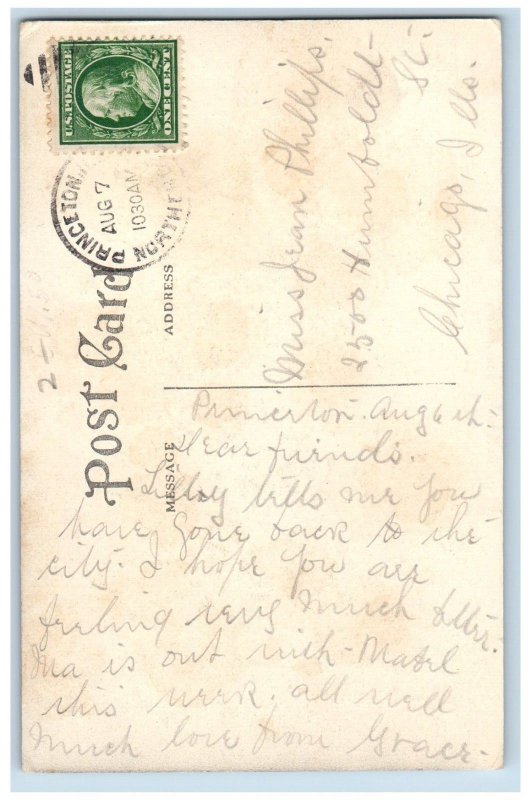 U.S. POSTAGE
ONE CENT
PRINCETON,
AUG 7
1030AM
Post Card
ADDRESS
MESSAGE
Miss Jean Phillips.
2500 Humboldt
St.
Chicago, Ills.
Princeton. Aug 6th.
Dear friends.
tells me you
have gone back to the
city. I hope you are
feeling very much better.
Ma is out with Mabel
this week. all well
Much love from Grace-